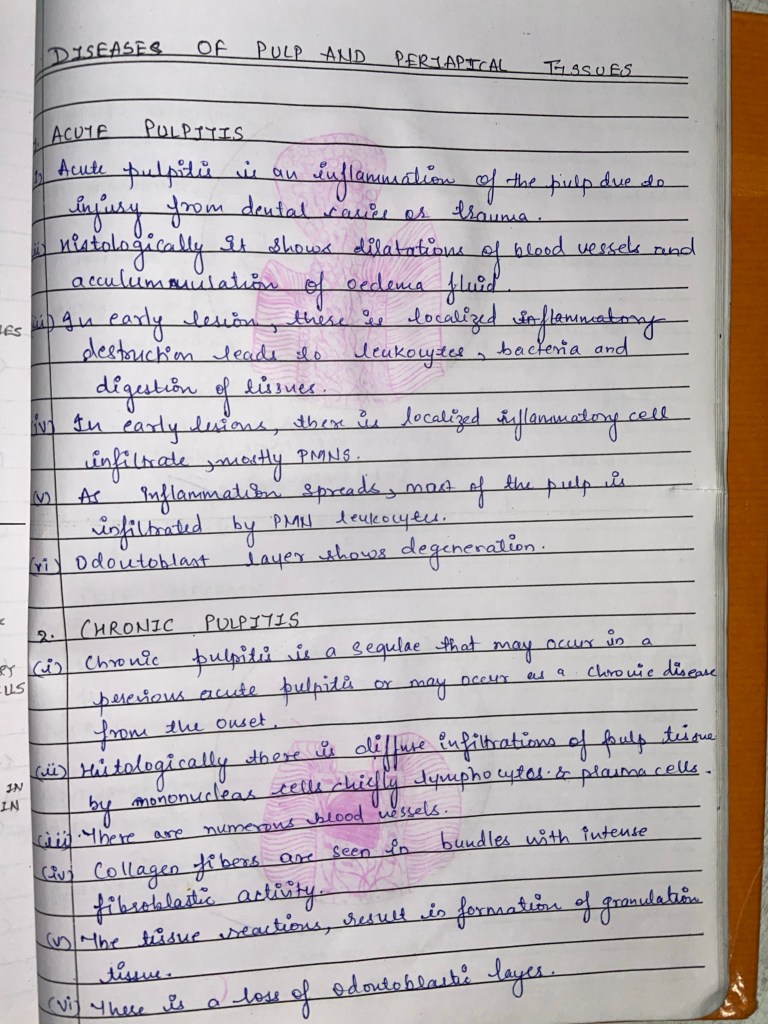 DISEASES OF PULP AND PERIAPICAL TISSUES
ACUTE PULPITIS
i) Acute pulpitis is an inflammation of the pulp due to
injury from dental caries or trauma.
ii) Histologically it shows dilatations of blood vessels and
acculummulation of oedema fluid.
iii) In early lesion, there is localized inflammatory
destruction leads to leukocytes, bacteria and
digestion of tissues.
iv) In early lesions, there is localized inflammatory cell
infiltrate, mostly PMNS.
(v) As inflammation spreads, most of the pulp is
infiltrated by PMN leukocytes.
(vi) Odoutoblast layer shows degeneration.
2. CHRONIC PULPITIS
(i) Chronic pulpitis is a sequlae that may occur in a
perevious acute pulpitis or may occur as a chronic disease
from the onset.
(ii) Histologically there is diffuse infiltrations of pulp tissue
by mononuclear cells chiefly lymphocytes & plasma cells.
(iii) There are numerous blood vessels.
(iv) Collagen fibers are seen in bundles with intense
fibroblastic activity.
(v) The tissue reactions, result in formation of granulation
tissue.
(vi) There is a loss of odontoblastic layer.
ES
US
IN
IN